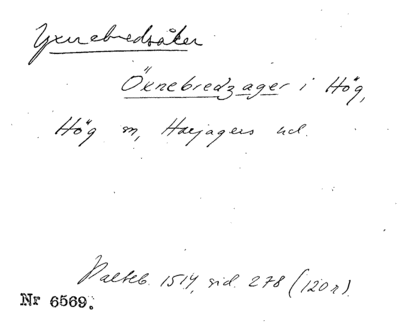 Yxnebredsåker
Öxnebredzager i Hög,
Hög sn, Harjagers hd.
Palteb. 1514, sid. 278 (120 r).
Nr 6569.